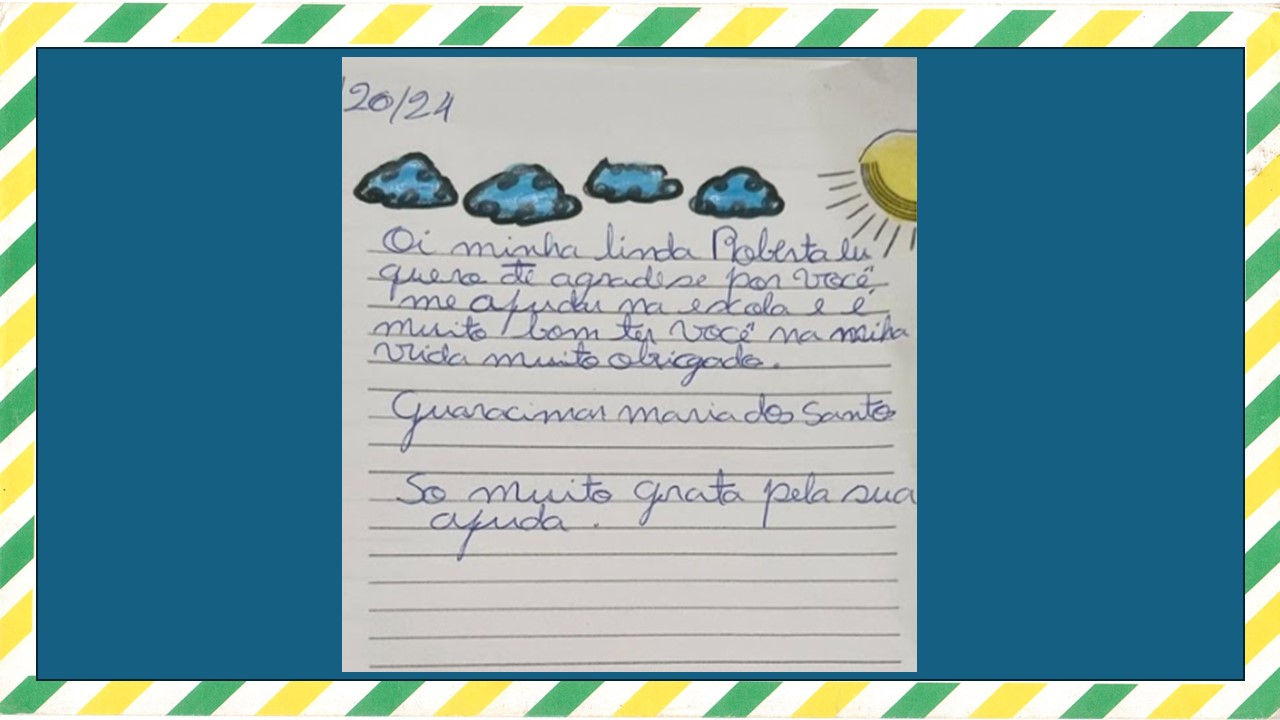 /20/24
Oi minha linda Roberta Eu
quero te agradese por você
me ajudar na escola e é
muito bom ter você na minha
vida muito obrigado.
Guaracimar maria dos Santos
So muito grata pela sua
ajuda.